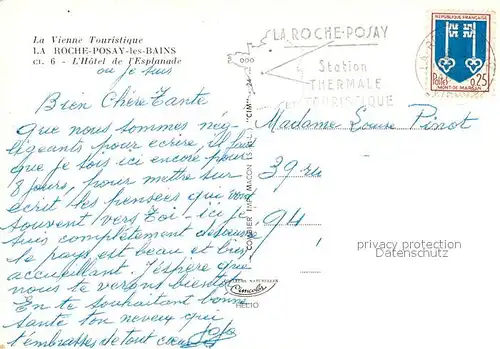 La Vienne Touristique
LA ROCHE-POSAY-les-BAINS
CI. 6 - L'Hôtel de l'Esplanade
ou je suis
Bien Chère Tante
que nous sommes nég-
ligeants pour écrire, il faut
que je sois ici encore pour
8 jours, pour mettre sur
écrit les pensées qui vont
souvent vers Toi - ici je
suis complètement
le pays est beau et bien
accueillant. J'espère que
nous te verrons bientôt
En te souhaitant bonne
santé ton neveu qui
t'embrasse de tout coeur
Jojo
COMBIER IMP. MACON "CIM"
COULEURS NATURELLES
Cimcolor
HELIO
LA ROCHE-POSAY
Station
THERMALE
TOURISTIQUE
REPUBLIQUE FRANÇAISE
Postes 0,25
MONT-DE-MARSAN
Madame Louise Pinot
39 rue
94
privacy protection
Datenschutz